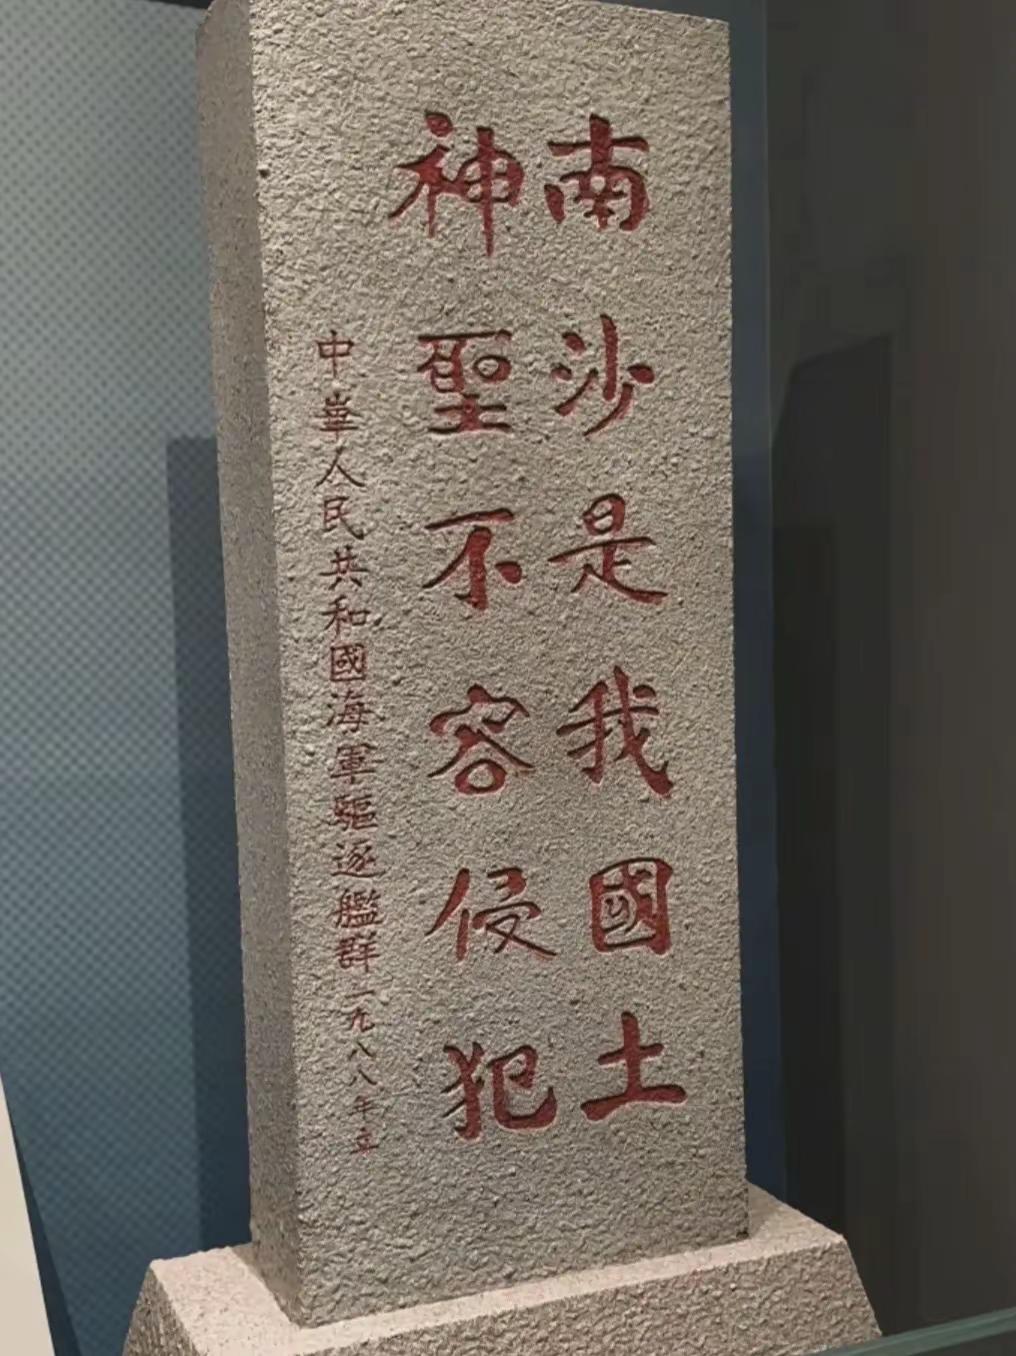 南沙是我國土
神聖不容侵犯
中華人民共和國海軍驅逐艦群一九八八年立